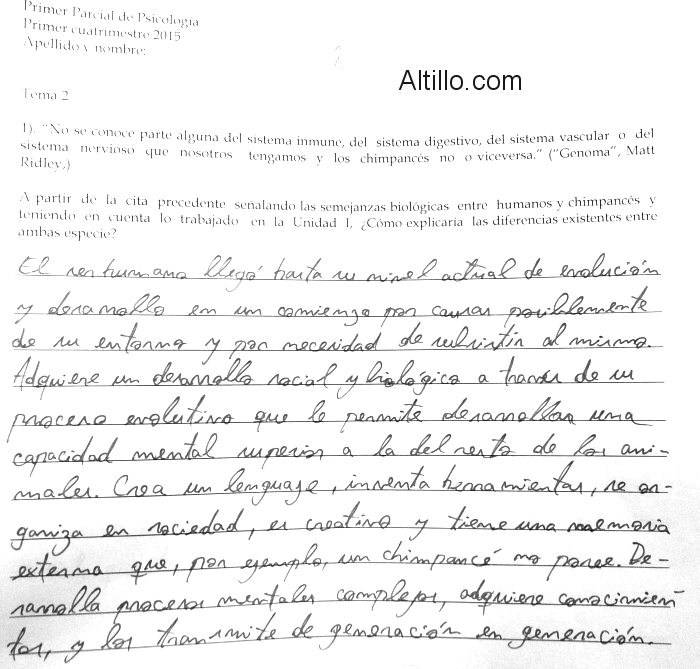 Primer Parcial de Psicología
Primer cuatrimestre 2015
Apellido y nombre:
Altillo.com
Tema 2
1). "No se conoce parte alguna del sistema inmune, del sistema digestivo, del sistema vascular o del
sistema nervioso que nosotros tengamos y los chimpancés no o viceversa." ("Genoma", Matt
Ridley.)
A partir de la cita precedente señalando las semejanzas biológicas entre humanos y chimpancés y
teniendo en cuenta lo trabajado en la Unidad I, ¿Cómo explicaría las diferencias existentes entre
ambas especie?
El ser humano llegó hasta su nivel actual de evolución
y desarrollo en un comienzo por causas posiblemente
de su entorno y por necesidad de subsistir al mismo.
Adquiere un desarrollo social y biológico a través de su
proceso evolutivo que le permite desarrollar una
capacidad mental superior a la del resto de los ani-
males. Crea un lenguaje, inventa herramientas, se or-
ganiza en sociedad, es creativo y tiene una memoria
externa que, por ejemplo, un chimpancé no posee. De-
sarrolla procesos mentales complejos, adquiere conocimien-
tos, y los transmite de generación en generación.